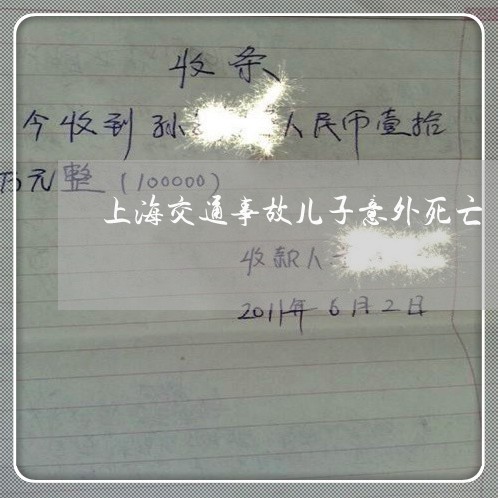 收条
今收到孙 人民币壹拾
万元整（100000）
上海交通事故儿子意外死亡
收款人
2011年6月2日